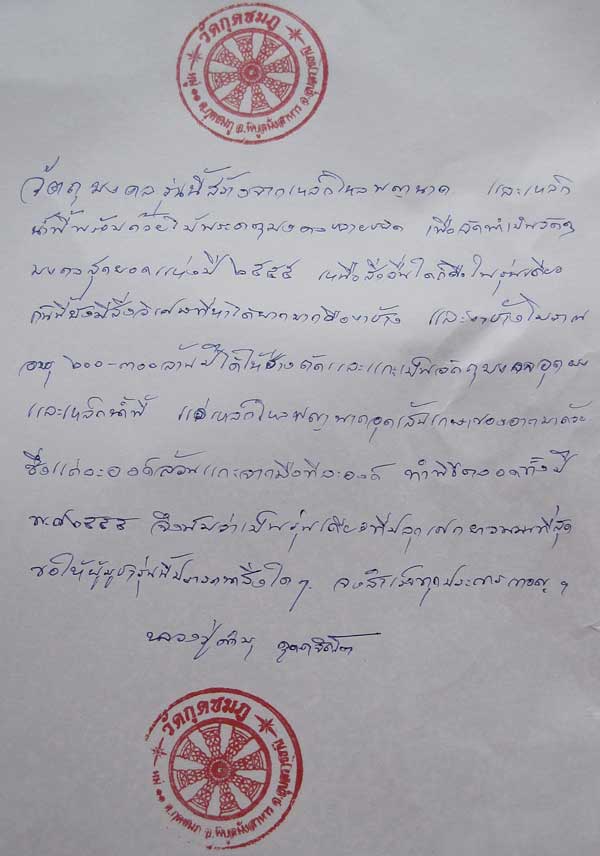 วัดกุดชมภู
หมู่ ๑๑ ต.กุดชมภู อ.พิบูลมังสาหาร จ.อุบลราชธานี
วัตถุมงคลรุ่นนี้สร้างจากเหล็กไหลพญานาค และเหล็ก
น้ำพี้พร้อมด้วยไม้พระธาตุพนม เพื่อจัดทำเป็นวัตถุ
มงคลสุดยอดแห่งปี ๒๕๕๕ เหนือสิ่งอื่นใดก็คือในรุ่นเดียว
กันนี้ยังมีสิ่งวิเศษที่หาได้ยากมากคืองาช้าง และงาช้างโบราณ
อายุ ๒๐๐-๓๐๐ล้านปีได้ให้ช่างตัดและแกะเป็นวัตถุมงคลอุดผง
และเหล็กน้ำพี้ แร่เหล็กไหลพญานาคอุดเส้นเกษาของอาตมาด้วย
ซึ่งแต่ละองค์ล้วนแกะจากมือทีละองค์ ทำพิธีตลอดทั้งปี
พ.ศ๒๕๕๕ จึงนับว่าเป็นรุ่นเดียวที่ปลุกเสกยาวนานที่สุด
ขอให้ผู้บูชารุ่นนี้ปรารถนาสิ่งใดๆ จงสำเร็จทุกประการเทอญ ฯ
หลวงปู่คำบุ คุตฺตจิตฺโต
วัดกุดชมภู
หมู่ ๑๑ ต.กุดชมภู อ.พิบูลมังสาหาร จ.อุบลราชธานี